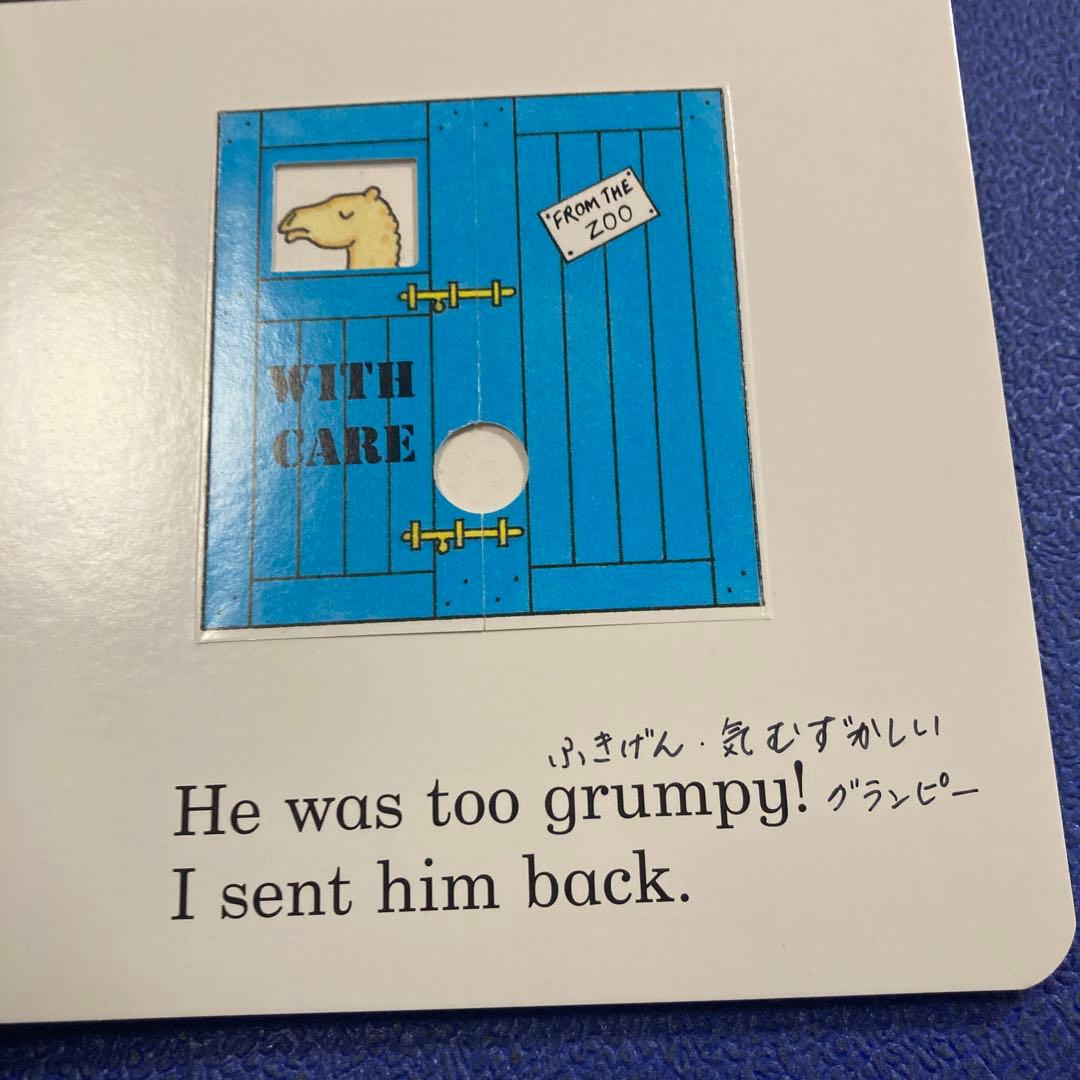 FROM THE
ZOO
WITH
CARE
ふきげん・気むずかしい
He was too grumpy! グランピー
I sent him back.